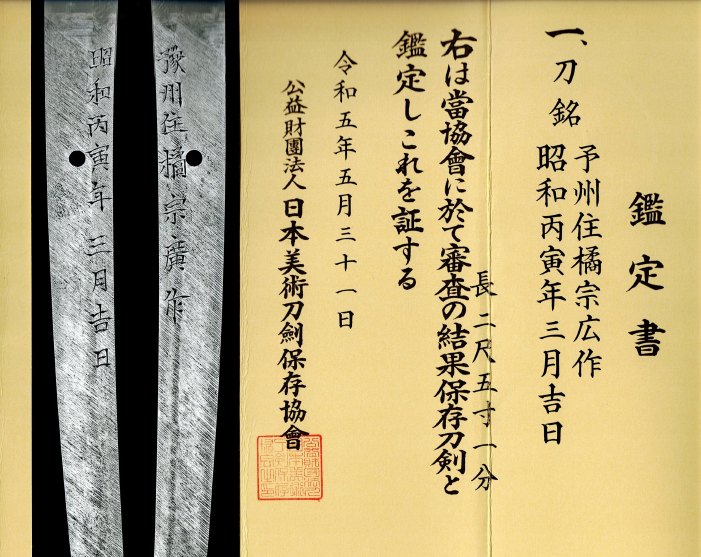 鑑定書
一、刀 銘 予州住橘宗広作
昭和丙寅年三月吉日
長二尺五寸一分
右は當協會に於て審査の結果保存刀剣と
鑑定しこれを証する
令和五年五月三十一日
公益財團法人日本美術刀劍保存協會
豫州住橘宗廣作
昭和丙寅年三月吉日